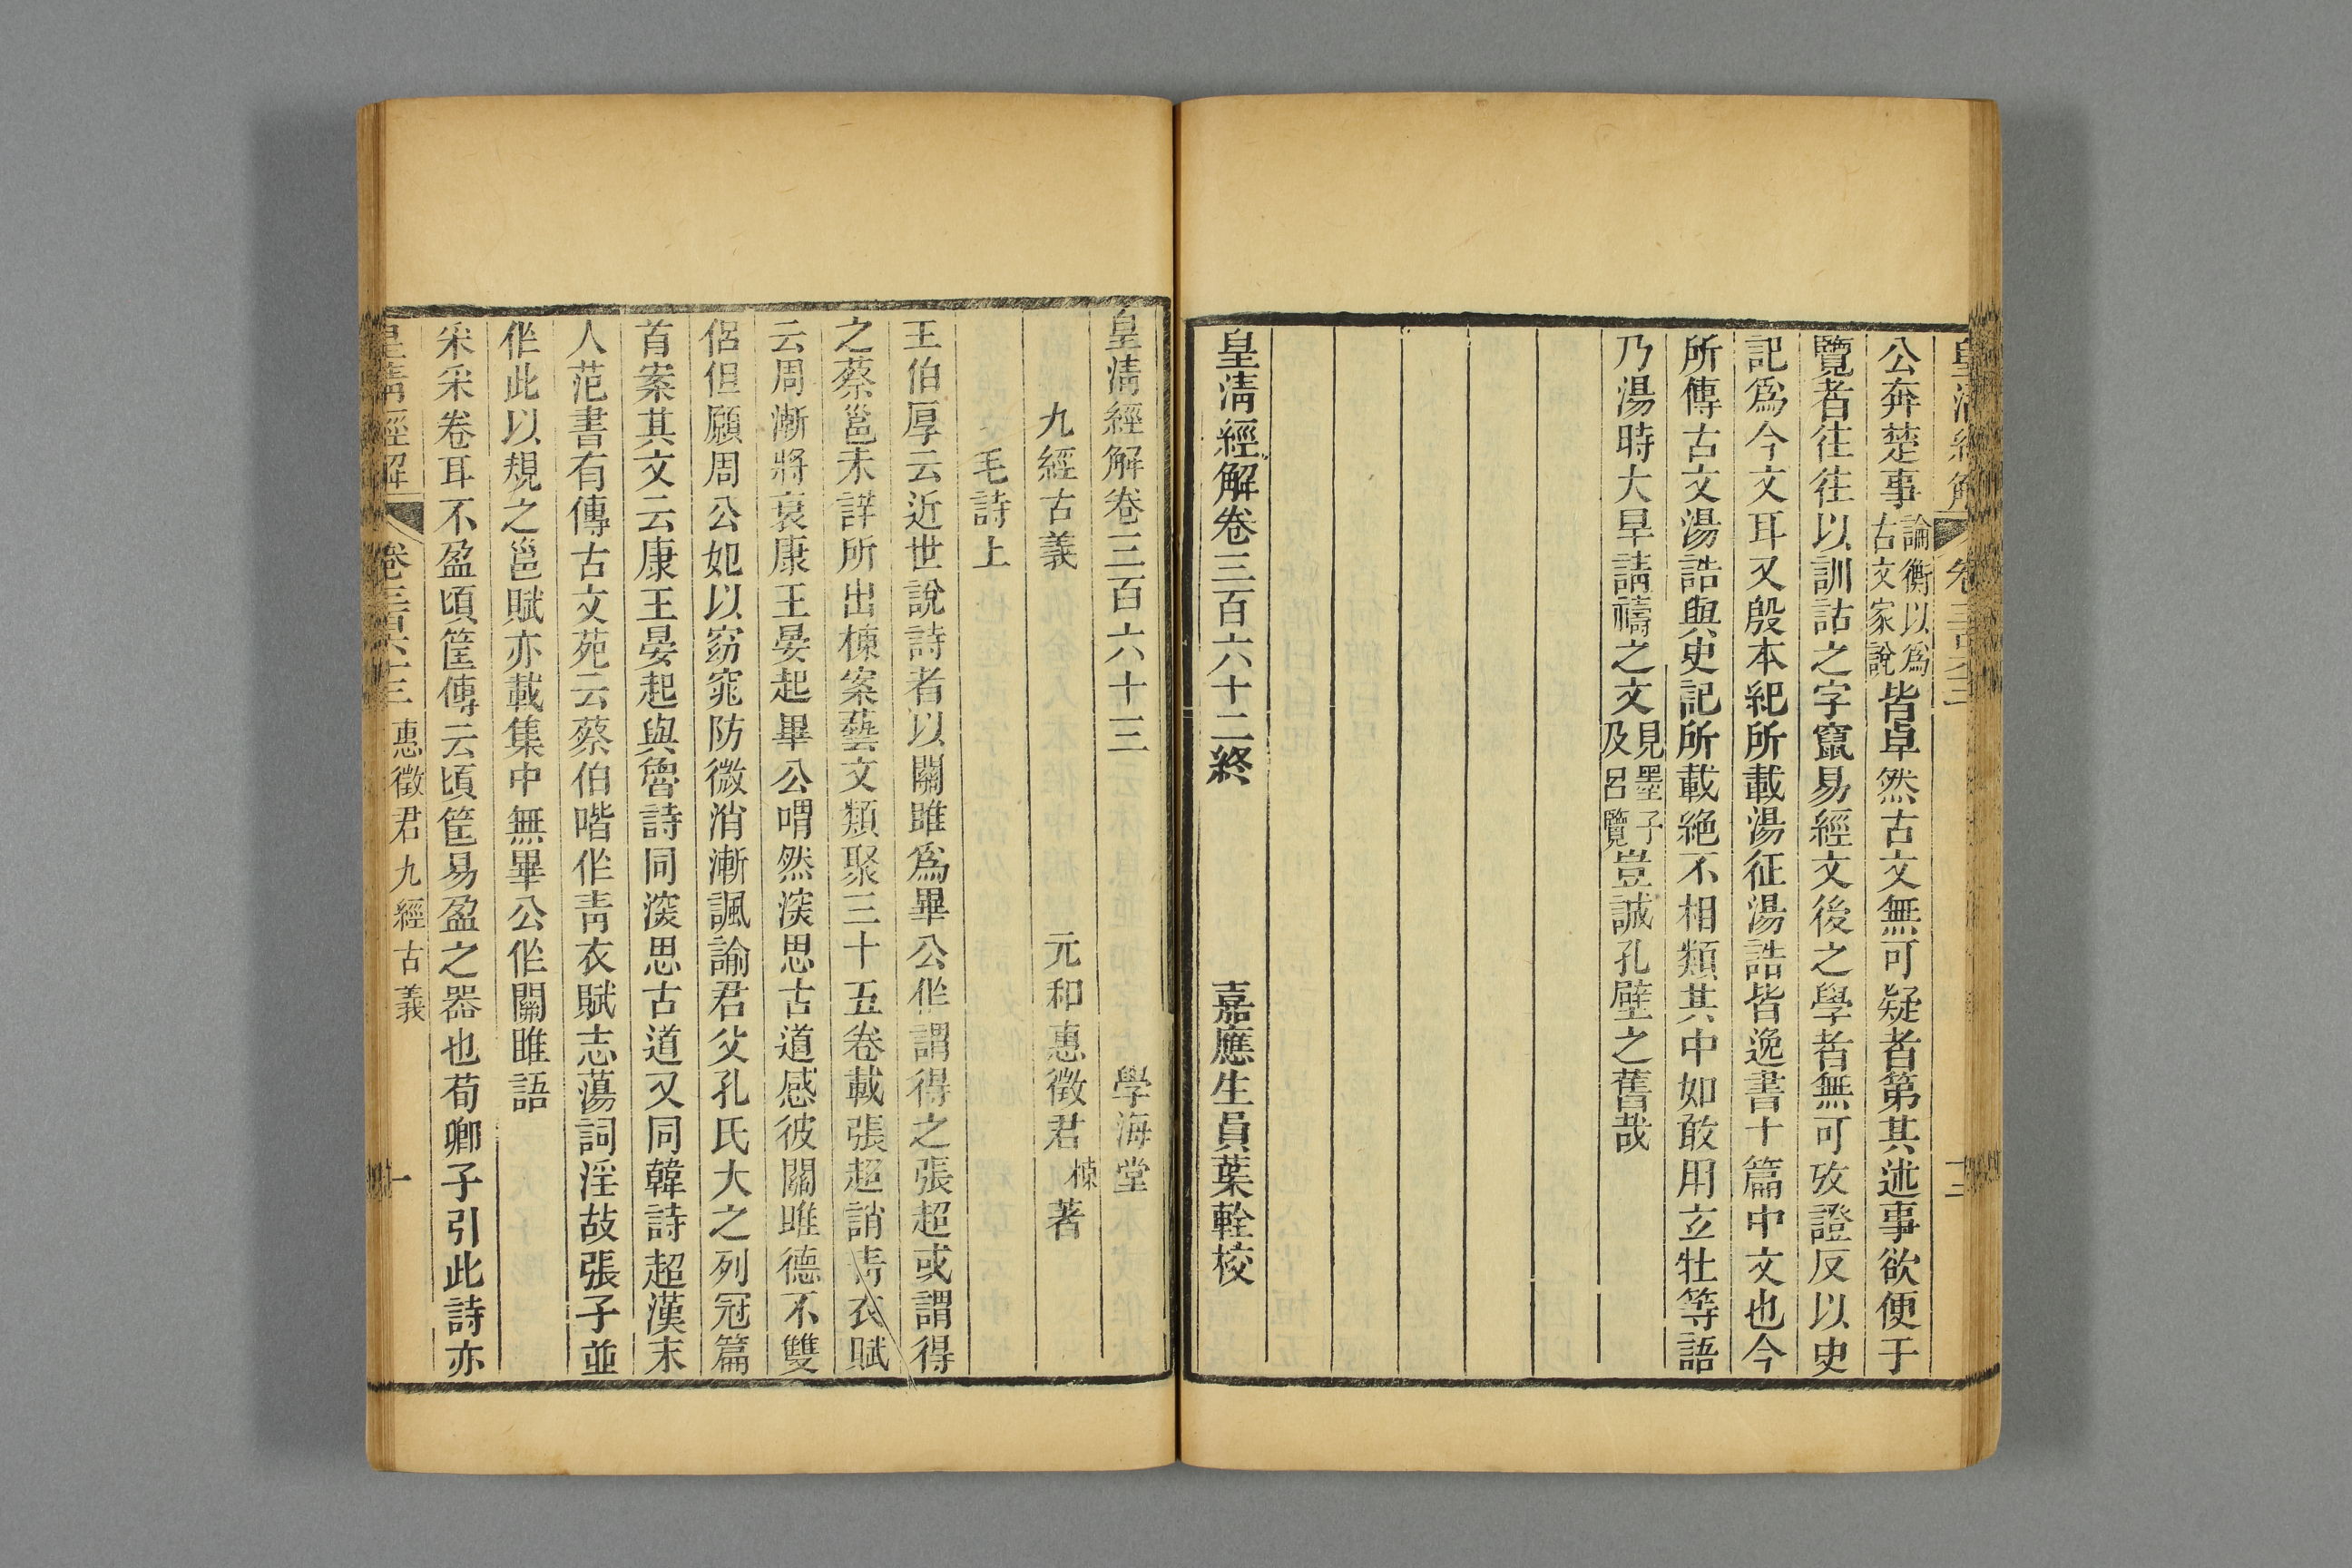 公奔楚事論衡以爲古文家說皆卓然古文無可疑者第其述事欲便于
覽者往往以訓詁之字竄易經文後之學者無可攷證反以史
記爲今文耳又殷本紀所載湯征湯誥皆逸書十篇中文也今
所傳古文湯誥與史記所載絶不相類其中如敢用玄牡等語
乃湯時大旱請禱之文見墨子及呂覽豈誠孔壁之舊哉
皇淸經解卷三百六十二終 嘉應生員葉輇校
皇淸經解卷三百六十三 學海堂
九經古義 元和惠徵君棟著
毛詩上
王伯厚云近世說詩者以關雎爲畢公作謂得之張超或謂得
之蔡邕未詳所出棟案藝文類聚三十五卷載張超誚靑衣賦
云周漸將衰康王晏起畢公喟然深思古道感彼關雎德不雙
侶但願周公妃以窈窕防微消漸諷諭君父孔氏大之列冠篇
首案其文云康王晏起與魯詩同深思古道又同韓詩超漢末
人范書有傳古文苑云蔡伯喈作靑衣賦志蕩詞淫故張子並
作此以規之邕賦亦載集中無畢公作關雎語
采采卷耳不盈頃筐傳云頃筐易盈之器也荀卿子引此詩亦
皇淸經解 卷三百六十三 惠徵君九經古義 一